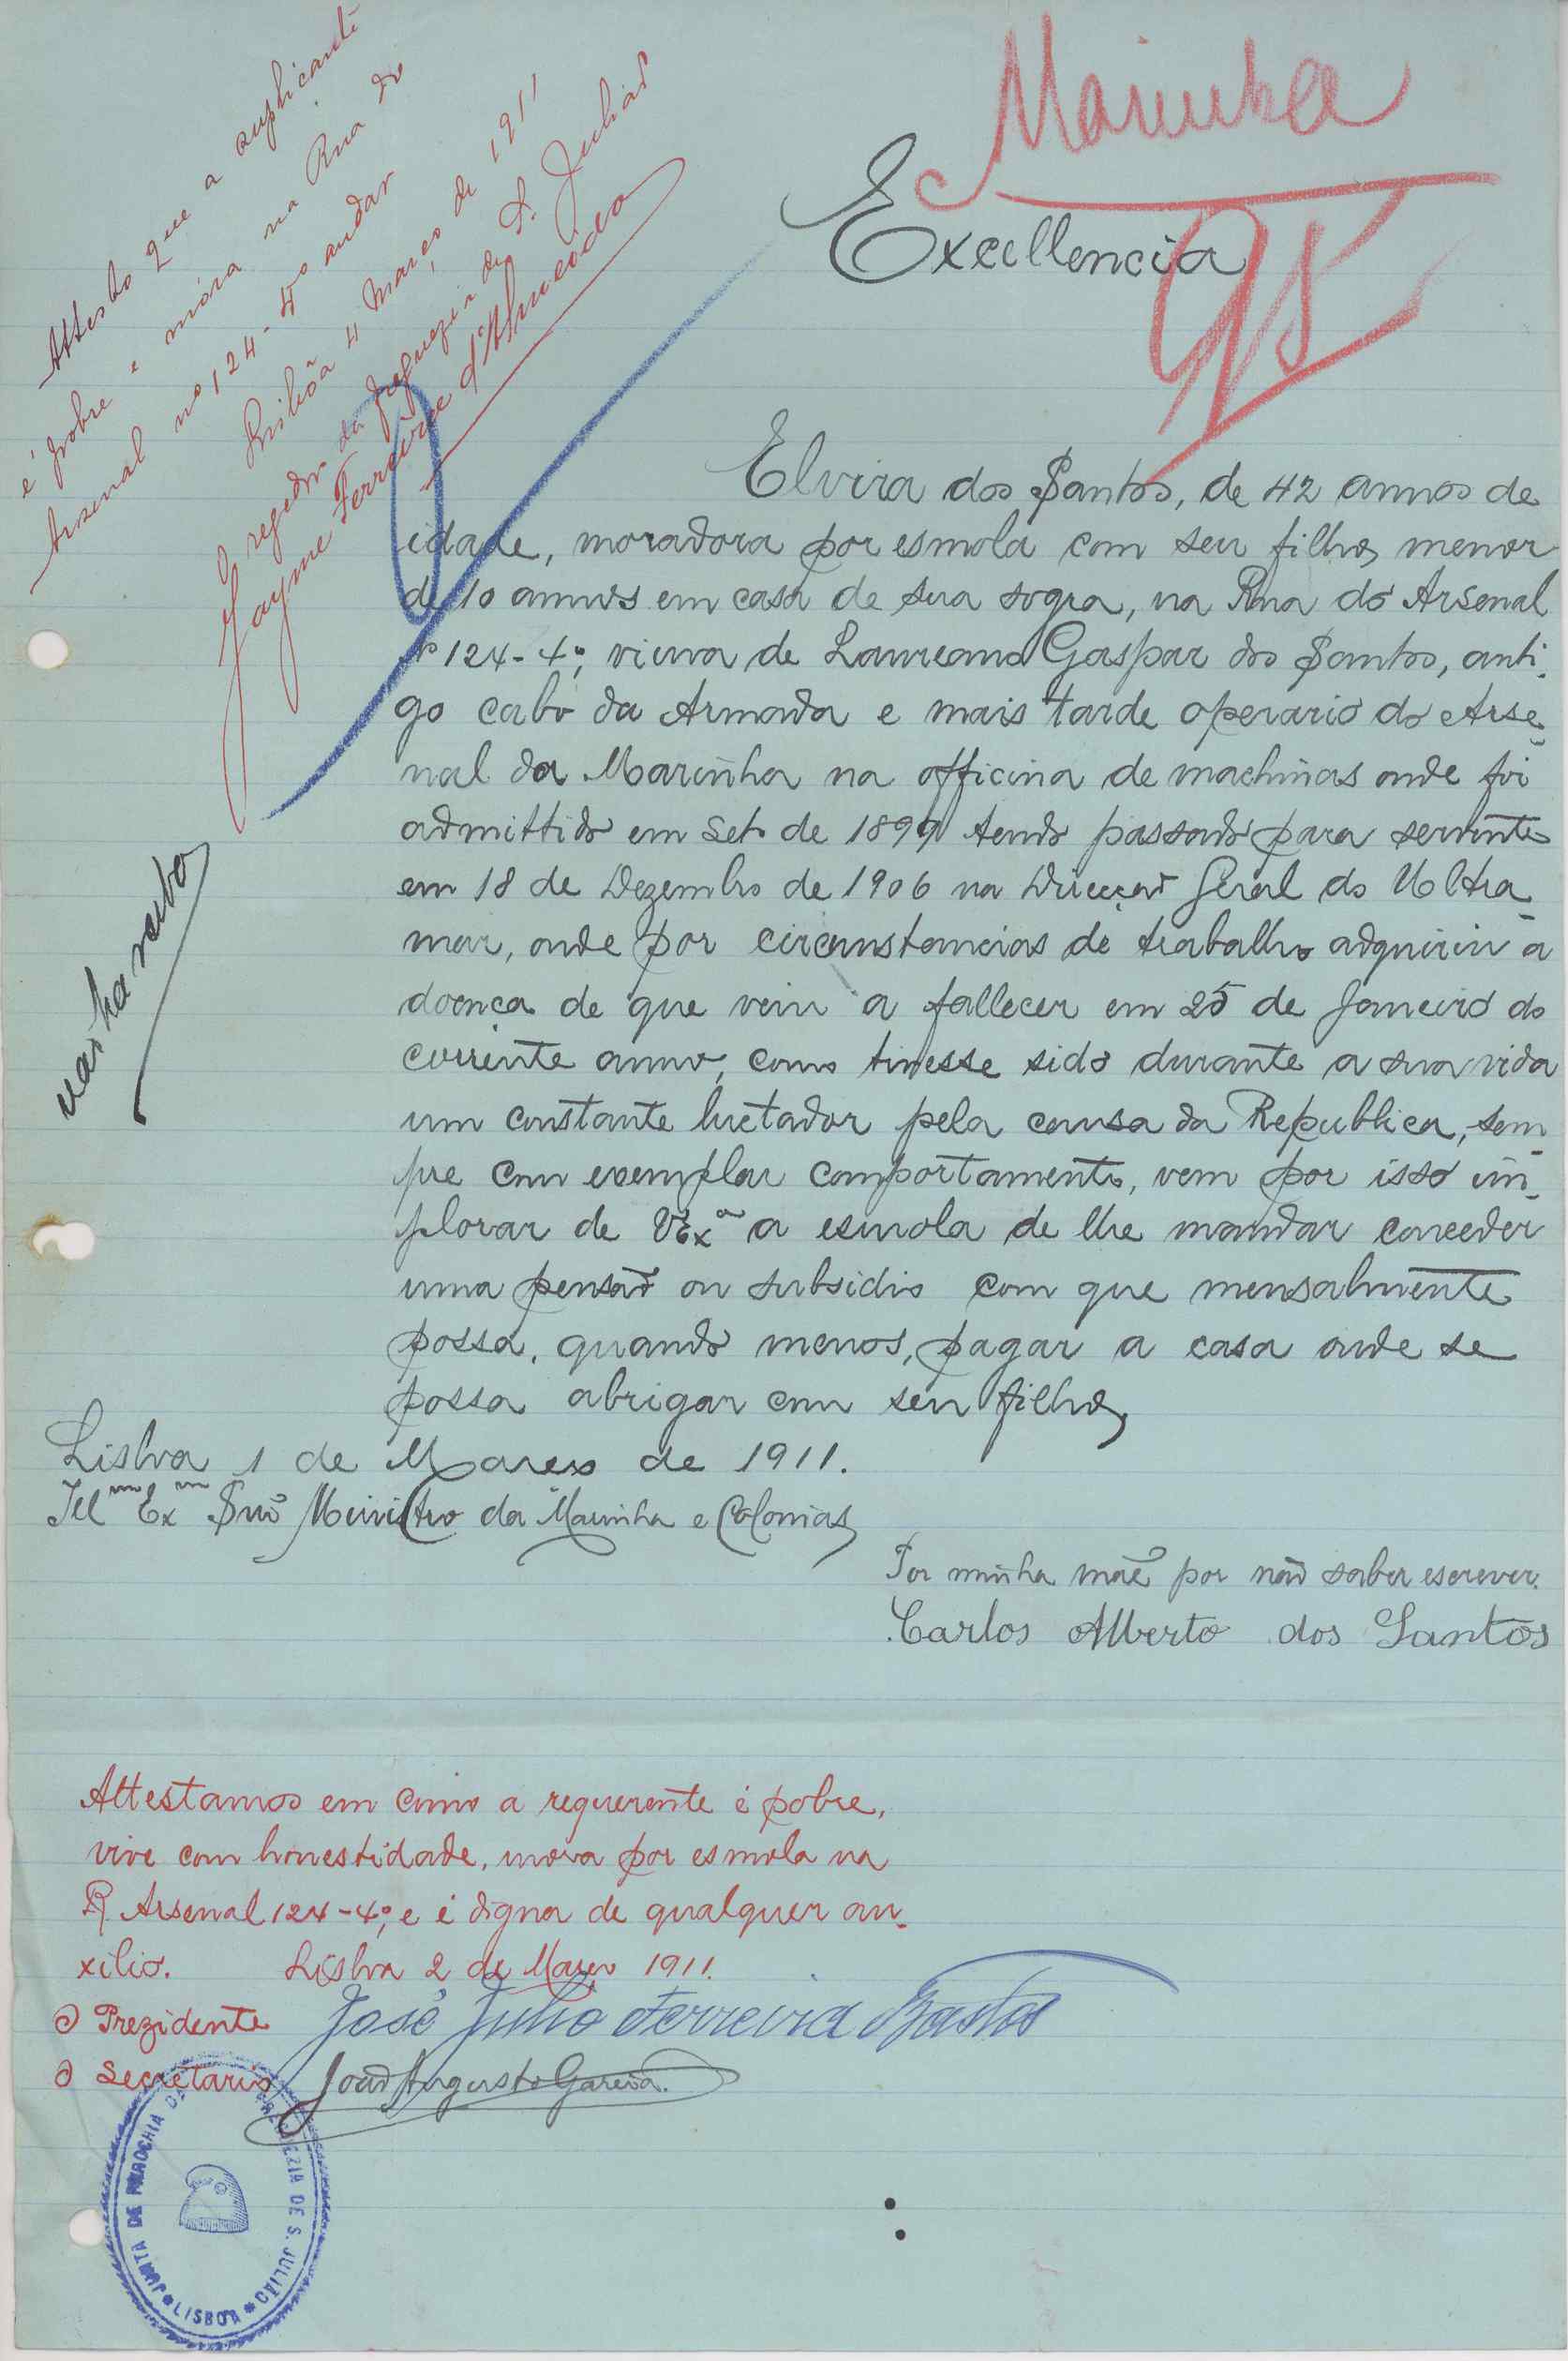 Marinha
Excellencia
Attesto que a suplicante
é pobre e móra na Rua do
Arsenal nº 124-4º andar
Lisbôa 4 Março de 1911
O regedor da freguezia de S. Julião
Jayme Ferreira d'Almeida
Elvira dos Santos, de 42 annos de
idade, moradora por esmola com seu filho, menor
de 10 annos em casa de sua sogra, na Rua do Arsenal
nº 124-4º, viuva de Laureano Gaspar dos Santos, anti-
go cabo da Armada e mais tarde operario do Arse-
nal da Marinha na officina de machinas onde foi
admittido em Setº de 1899 tendo passado para servente
em 18 de Dezembro de 1906 na Direcção Geral do Ultra-
mar, onde por circunstancias de trabalho adquiriu a
doença de que veiu a fallecer em 25 de Janeiro do
corrente anno, como tivesse sido durante a sua vida
um constante luctador pela causa da Republica, sem-
pre com exemplar comportamento, vem por isso im-
plorar de VExª a esmola de lhe mandar conceder
uma pensão ou subsidio com que mensalmente
possa, quando menos, pagar a casa onde se
possa abrigar com seu filho,
não ha verba
Lisboa 1 de Março de 1911.
Illmo Exmo Snr Ministro da Marinha e Colonias
Por minha mãe por não saber escrever.
Carlos Alberto dos Santos
Attestamos em como a requerente é pobre,
vive com honestidade, mora por esmola na
R. Arsenal 124-4º, e é digna de qualquer au-
xilio. Lisboa 2 de Março 1911.
O Prezidente José Julio Ferreira Bastos
O Secretario João Augusto Garcia.
JUNTA DE PAROCHIA DA FREGUEZIA DE S. JULIÃO
* LISBOA *